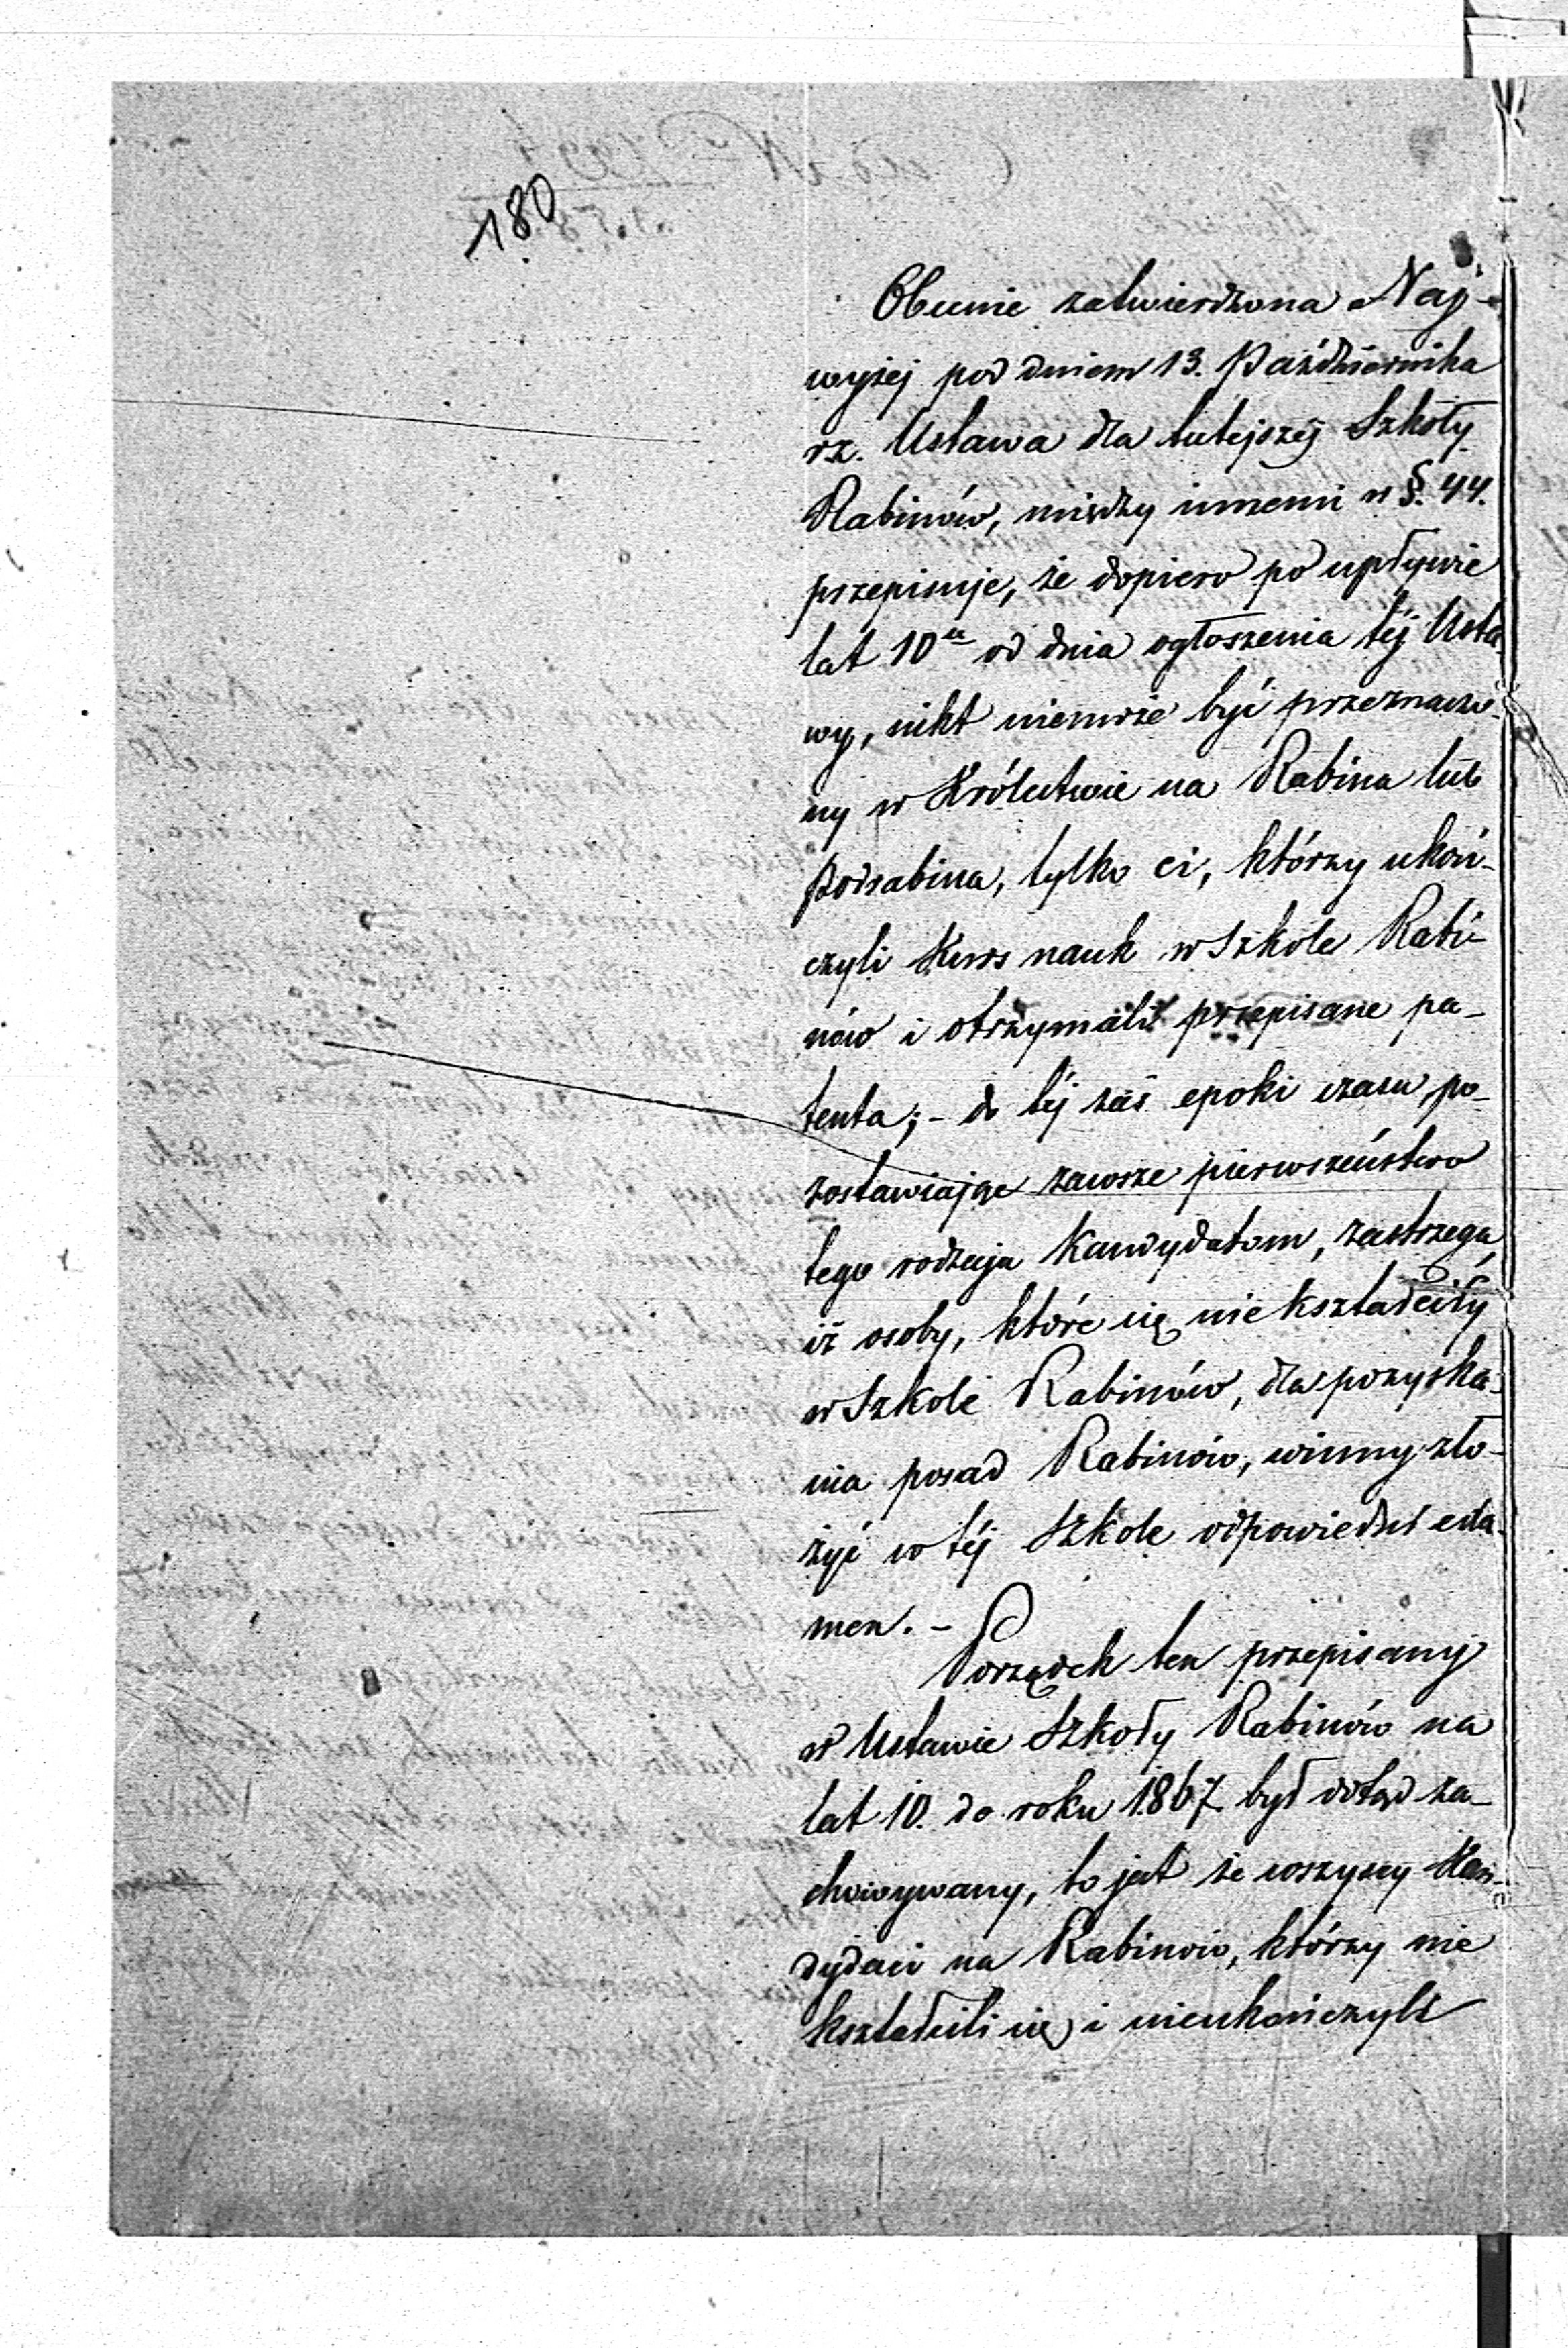 180
Obecnie zatwierdzona Naj-
wyżej pod dniem 13. Października
rz. Ustawa dla tutejszéj Szkoły
Rabinów, między innemi w §. 44.
przepisuje, że dopiero po upływie
lat 10u od dnia ogłoszenia téj Usta-
wy, nikt niemoże być przeznaczo-
ny w Królestwie na Rabina lub
Podrabina, tylko ci, którzy ukoń-
czyli Kurs nauk w Szkole Rabi-
nów i otrzymali przepisane pa-
tenta; - do téj zaś epoki czasu po-
zostawiając zawsze pierwszeństwo
tego rodzaju Kandydatom, zastrzega
iż osoby, które się nie kształciły
w Szkole Rabinów, dla pozyska-
nia posad Rabinów, winny zło-
żyć w téj Szkole odpowiedni exa-
men. -
Porządek ten przepisany
w Ustawie Szkoły Rabinów na
lat 10. do roku 1867 był dotąd za-
chowywany, to jest że wszyscy Kan-
dydaci na Rabinów, którzy nie
kształcili się i nieukończyli